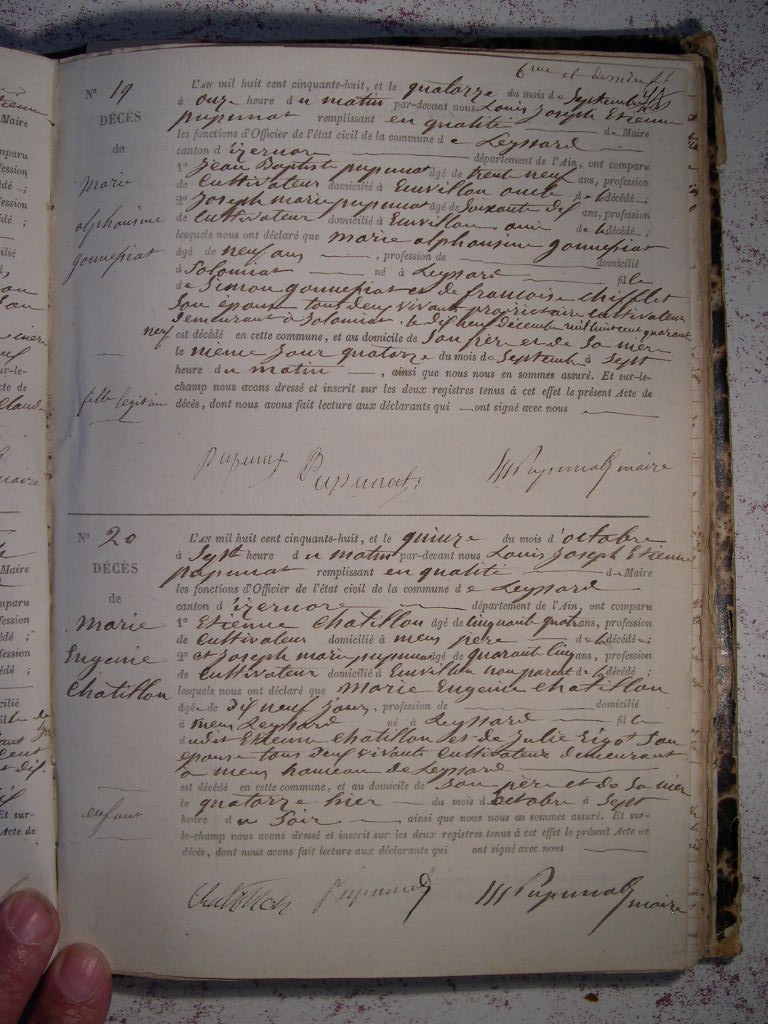 6me et dernier ft
No 19
DÉCÈS
de
Marie
alphonsine
gonnessiat
fille legitime
L'AN mil huit cent cinquante-huit, et le quatorze du mois de Septembre
à onze heure du matin par-devant nous Louis Joseph Etienne
pupunat remplissant en qualité de Maire
les fonctions d'Officier de l'état civil de la commune de Leyssard
canton d'izernore département de l'Ain, ont comparu
1o Jean Baptiste pupunat âgé de trente neuf ans, profession
de Cultivateur domicilié à Emvillon oncle de la décédée ;
2o Joseph marie pupunat âgé de Soixante dix ans, profession
de Cultivateur domicilié à Emvillon ami de la décédée ;
lesquels nous ont déclaré que marie alphonsine gonnessiat
âgée de neuf ans , profession de domicilié
à Solomiat né à Leyssard fille
de Simon gonnessiat et de francoise chifflet
Son épouse tous deux vivant proprietaire cultivateur
demeurant à Solomiat . le dix neuf décembre mil huit cent quarante
neuf est décédé en cette commune, et au domicile de Son père et de Sa mère
le même jour quatorze du mois de Septembre à Sept
heure du matin , ainsi que nous nous en sommes assuré. Et sur-le-
champ nous avons dressé et inscrit sur les deux registres tenus à cet effet le présent Acte de
décès, dont nous avons fait lecture aux déclarants qui ont signé avec nous
Pupunat Pupunat Pupunat maire
No 20
DÉCÈS
de
Marie
Eugenie
Chatillon
enfant
L'AN mil huit cent cinquante-huit, et le quinze du mois d'octobre
à Sept heure du matin par-devant nous Louis Joseph Etienne
pupunat remplissant en qualité de Maire
les fonctions d'Officier de l'état civil de la commune de Leyssard
canton d'izernore département de l'Ain, ont comparu
1o Etienne Chatillon âgé de Cinquante quatre ans, profession
de Cultivateur domicilié à mens père de la décédée ;
2o et Joseph marie pupunat âgé de quarante Cinq ans, profession
de Cultivateur domicilié à Emvillon non parent de la décédée ;
lesquels nous ont déclaré que Marie Eugenie Chatillon
âgée de Dix neuf Jours, profession de domicilié
à mens Leyssard né à Leyssard fille
dudit Etienne Chatillon et de Julie Son
épouse tous deux vivants Cultivateurs demeurant
a mens hameau de Leyssard
est décédé en cette commune, et au domicile de Son père et de Sa mère
le quatorze hier du mois d'octobre à Sept
heure du Soir ainsi que nous nous en sommes assuré. Et sur-
le-champ nous avons dressé et inscrit sur les deux registres tenus à cet effet le présent Acte de
décès, dont nous avons fait lecture aux déclarants qui ont signé avec nous
Chatillon Pupunat Pupunat maire